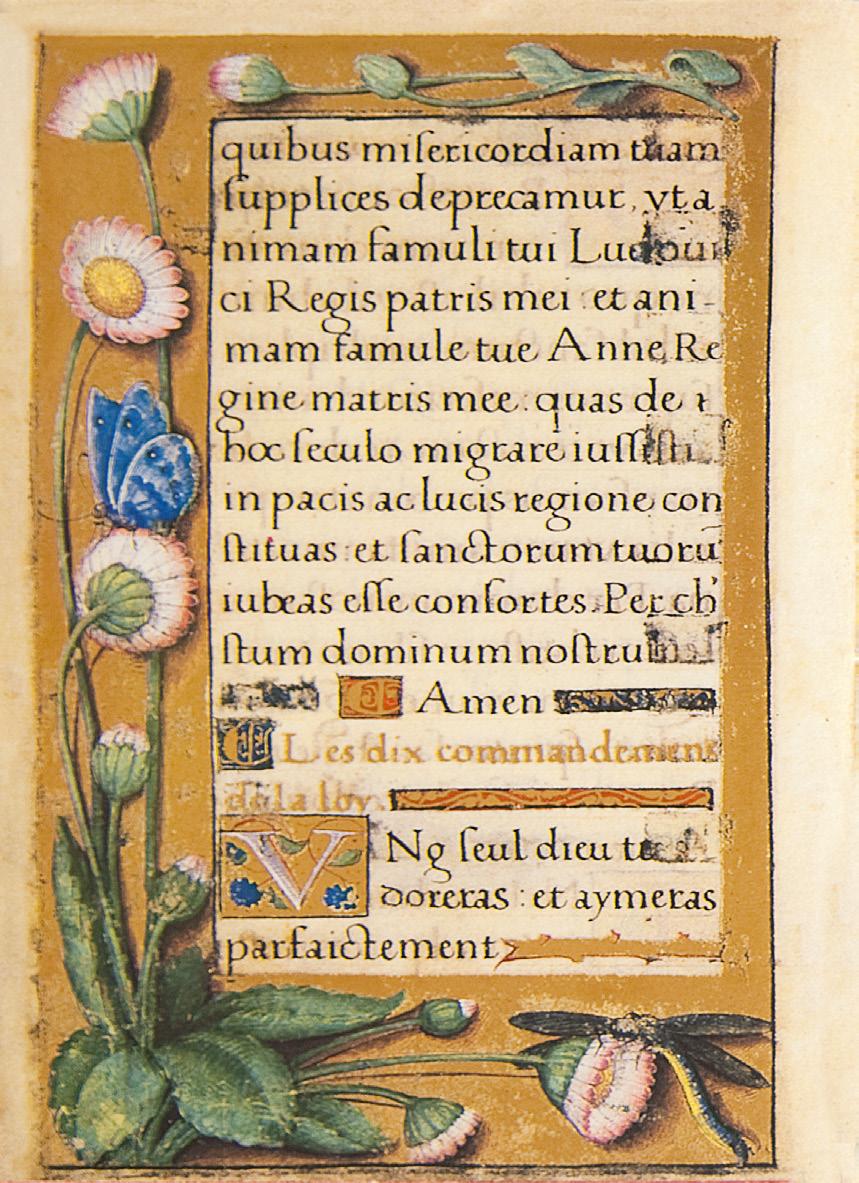 quibus miſericordiam tuam
ſupplices deprecamur, vt a
nimam famuli tui Ludoui
ci Regis patris mei et ani-
mam famule tue Anne Re
gine matris mee: quas de
hoc ſeculo migrare iuſſiſti
in pacis ac lucis regione con
ſtituas: et ſanctorum tuoru
iubeas eſſe conſortes. Per ch
ſtum dominum noſtru
Amen
Les dix commandemens
de la loy.
VNg ſeul dieu tu
doreras: et aymeras
parfaictement